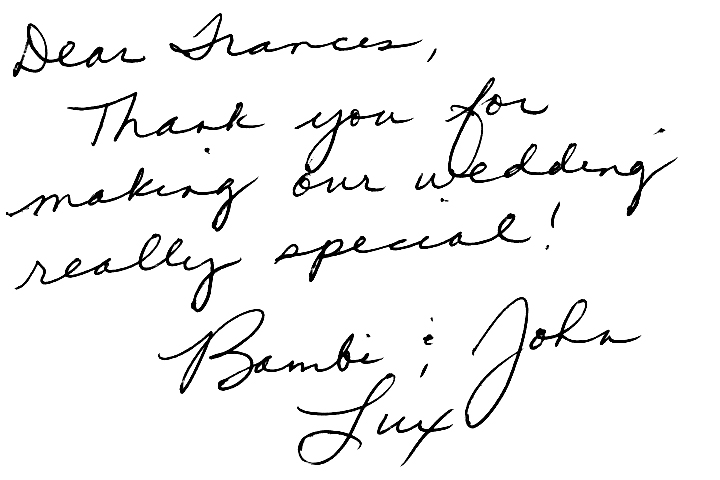 Dear Frances,
Thank you for
making our wedding
really special!
Bambi & John
Lux